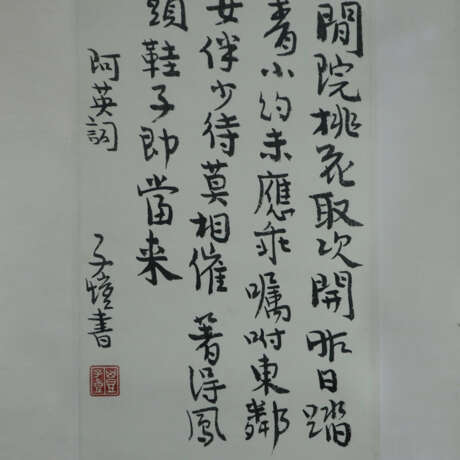 閒院桃花取次開昨日踏
青小約未應乖囑咐東鄰
女伴少待莫相催著得鳳
頭鞋子即當来
阿英詞
子愷書